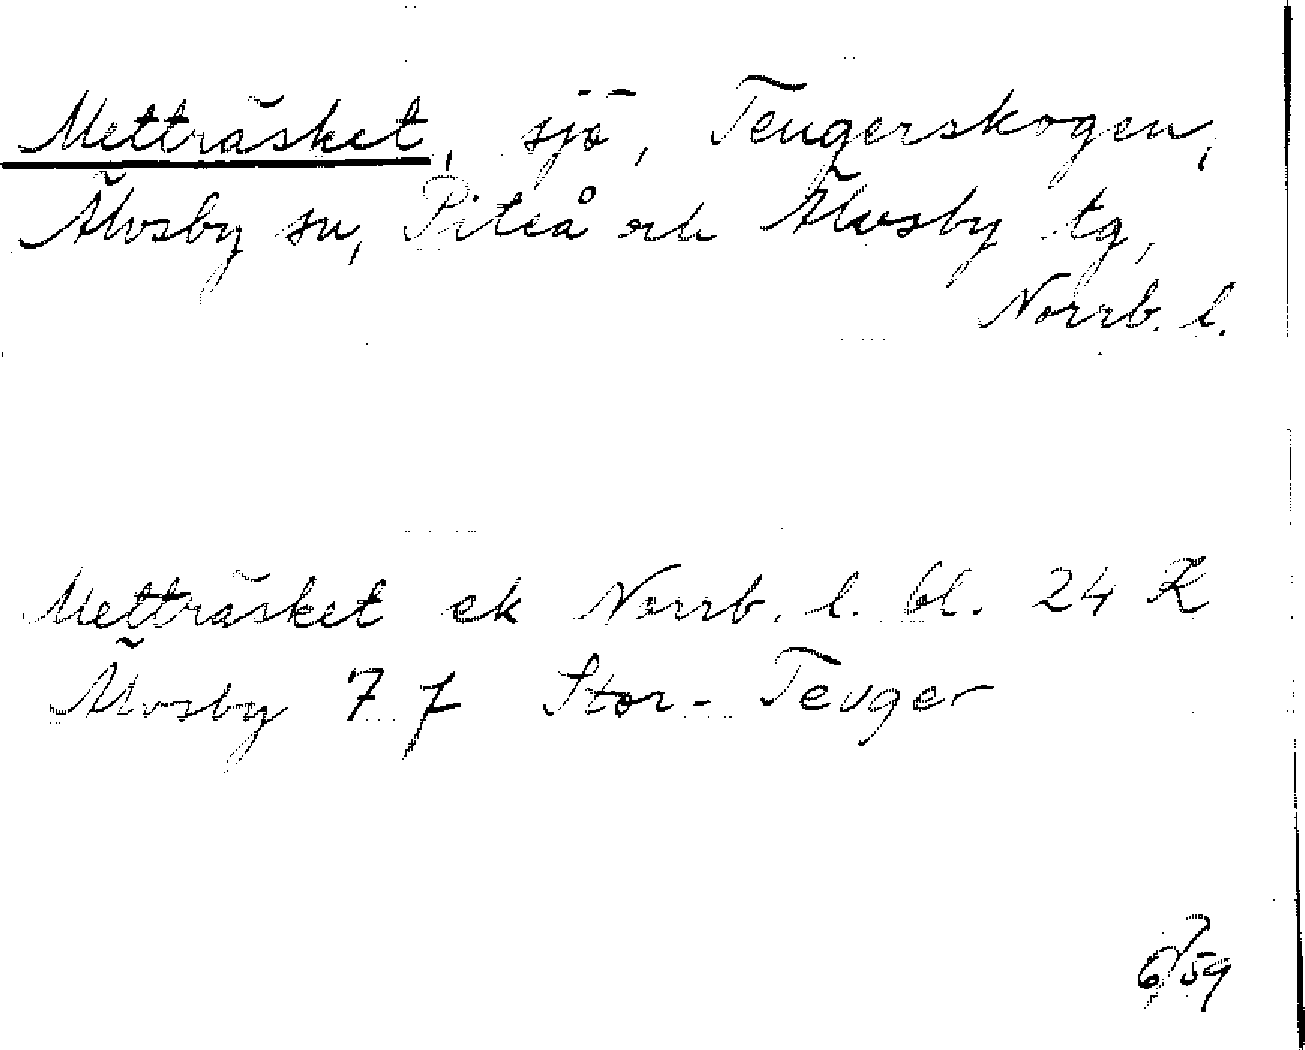 Metträsket, sjö, Teugerskogen,
Älvsby sn, Piteå och Älvsby tg,
Norrb. l.
Metträsket ek Norrb. l. bl. 24 K
Älvsby 7 f Stor-Teuger
6/59